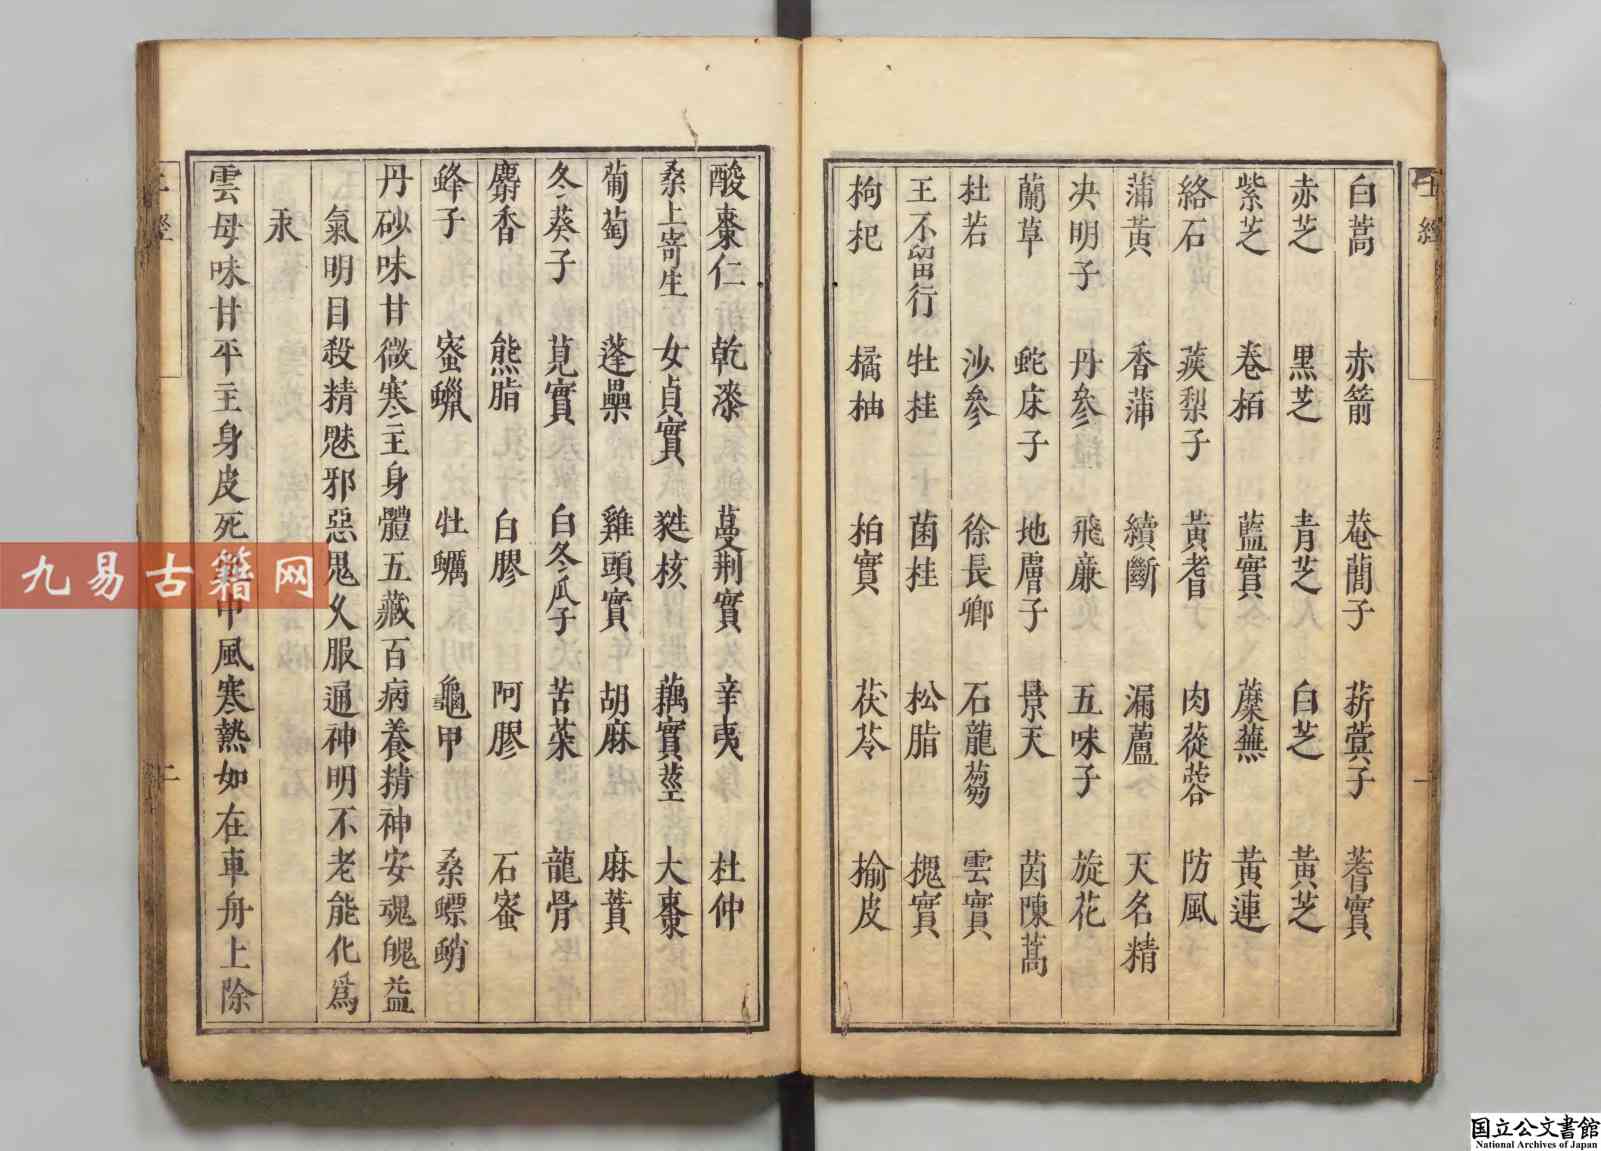 白蒿 赤箭 菴䕡子 菥蓂子 蓍實
赤芝 黑芝 青芝 白芝 黃芝
紫芝 卷栢 藍實 蘪蕪 黃連
絡石 蒺梨子 黃耆 肉蓯蓉 防風
蒲黃 香蒲 續斷 漏蘆 天名精
决明子 丹參 飛廉 五味子 旋花
蘭草 蛇床子 地膚子 景天 茵陳蒿
杜若 沙參 徐長卿 石龍蒭 雲實
王不留行 牡桂 菌桂 松脂 槐實
枸杞 橘柚 柏實 茯苓 榆皮
酸棗仁 乾漆 蔓荆實 辛夷 杜仲
桑上寄生 女貞實 蕤核 藕實莖 大棗
葡萄 蓬虆 雞頭實 胡麻 麻蕡
冬葵子 莧實 白冬瓜子 苦菜 龍骨
麝香 熊脂 白膠 阿膠 石蜜
蜂子 蜜蠟 牡蠣 龜甲 桑螵蛸
丹砂味甘微寒主身體五藏百病養精神安魂魄益
氣明目殺精魅邪惡鬼久服通神明不老能化爲
汞
雲母味甘平主身皮死甲風寒熱如在車舟上除
九易古籍网
国立公文書館
National Archives of Japan